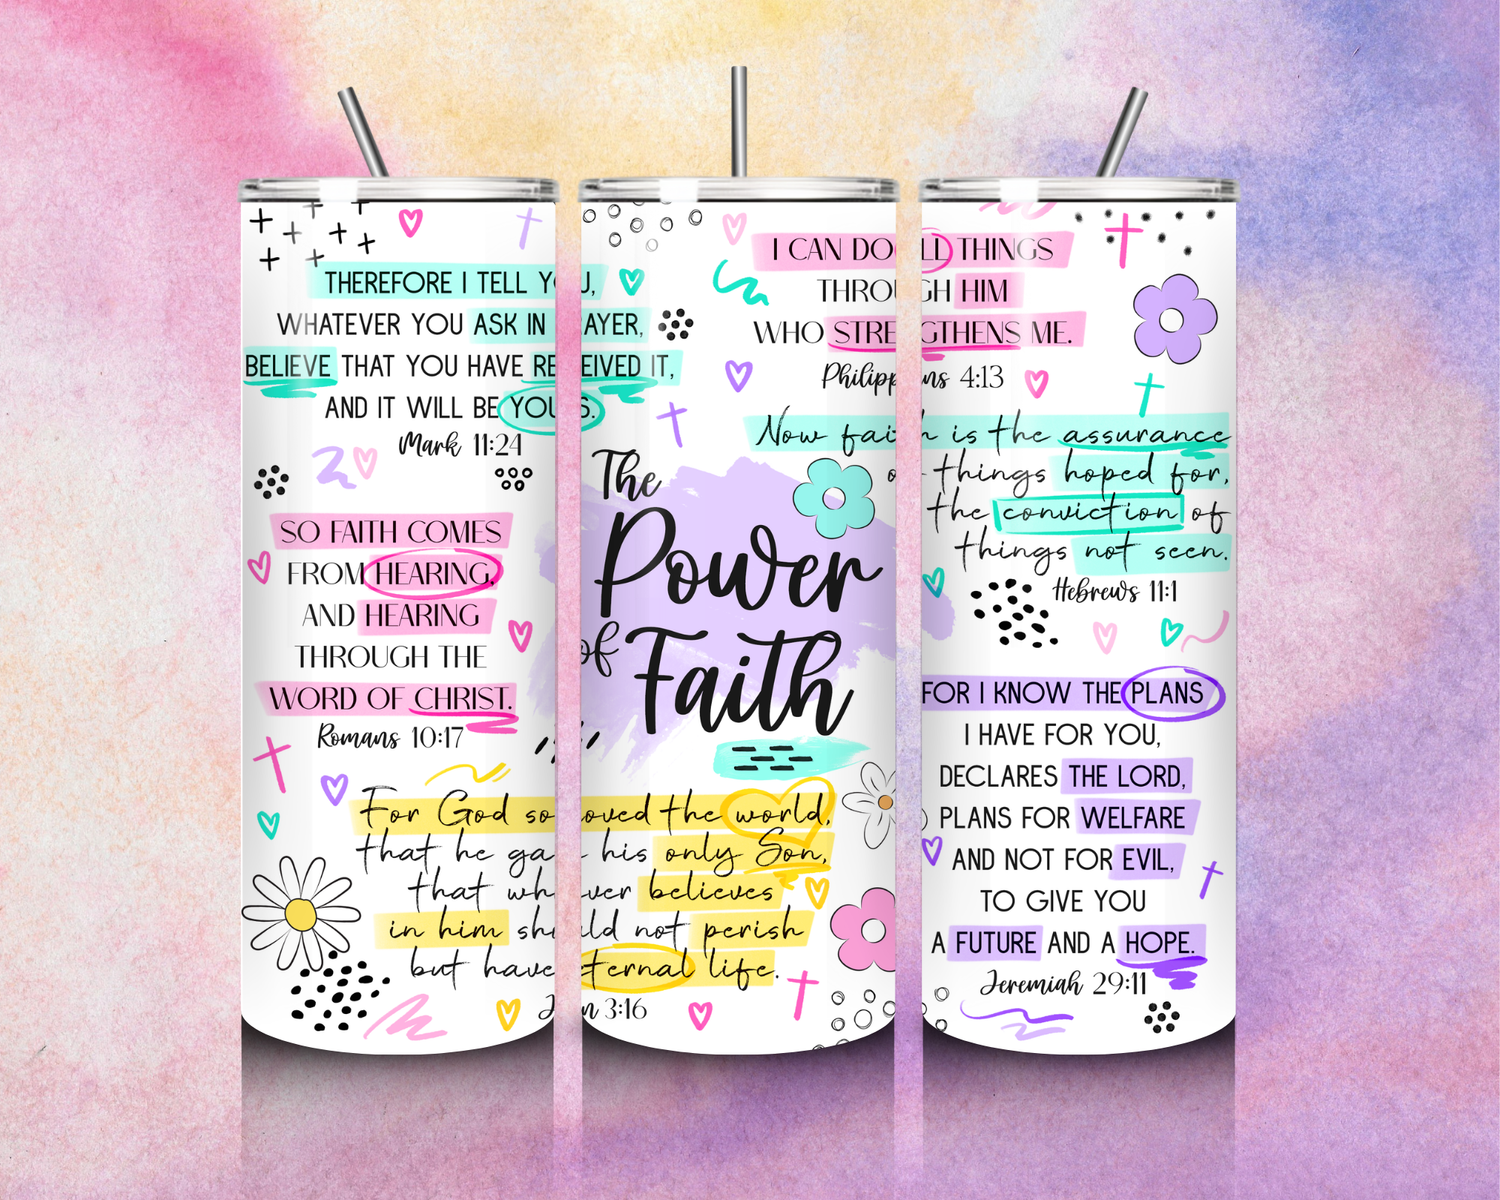 THEREFORE I TELL YOU,
WHATEVER YOU ASK IN PRAYER,
BELIEVE THAT YOU HAVE RECEIVED IT,
AND IT WILL BE YOURS.
Mark 11:24
SO FAITH COMES
FROM HEARING,
AND HEARING
THROUGH THE
WORD OF CHRIST.
Romans 10:17
For God so loved the world,
that he gave his only Son,
that whoever believes
in him should not perish
but have eternal life.
John 3:16
The
Power
of Faith
I CAN DO ALL THINGS
THROUGH HIM
WHO STRENGTHENS ME.
Philippians 4:13
Now faith is the assurance
of things hoped for,
the conviction of
things not seen.
Hebrews 11:1
FOR I KNOW THE PLANS
I HAVE FOR YOU,
DECLARES THE LORD,
PLANS FOR WELFARE
AND NOT FOR EVIL,
TO GIVE YOU
A FUTURE AND A HOPE.
Jeremiah 29:11